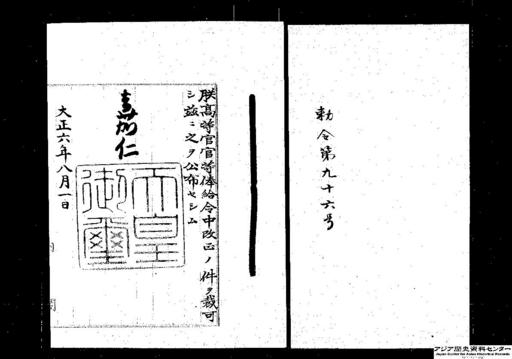 勅令第九十六号
朕高等官官等俸給令中改正ノ件ヲ裁可
シ茲ニ之ヲ公布セシム
嘉仁
天皇御璽
大正六年八月一日
内閣
アジア歴史資料センター
Japan Center for Asian Historical Records